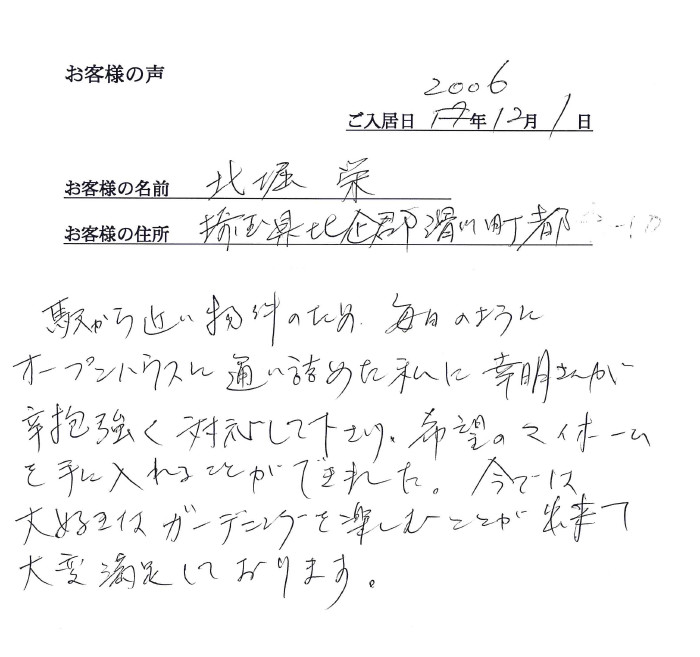 お客様の声
2006
ご入居日 年12月1日
お客様の名前 北堀 栄
お客様の住所 埼玉県比企郡滑川町都
駅から近い物件のため、毎日のように
オープンハウスに通い詰めた私に幸明さんが
辛抱強く対応して下さり、希望のマイホーム
を手に入れることができました。今では
大好きなガーデニングを楽しむことが出来て
大変満足しております。